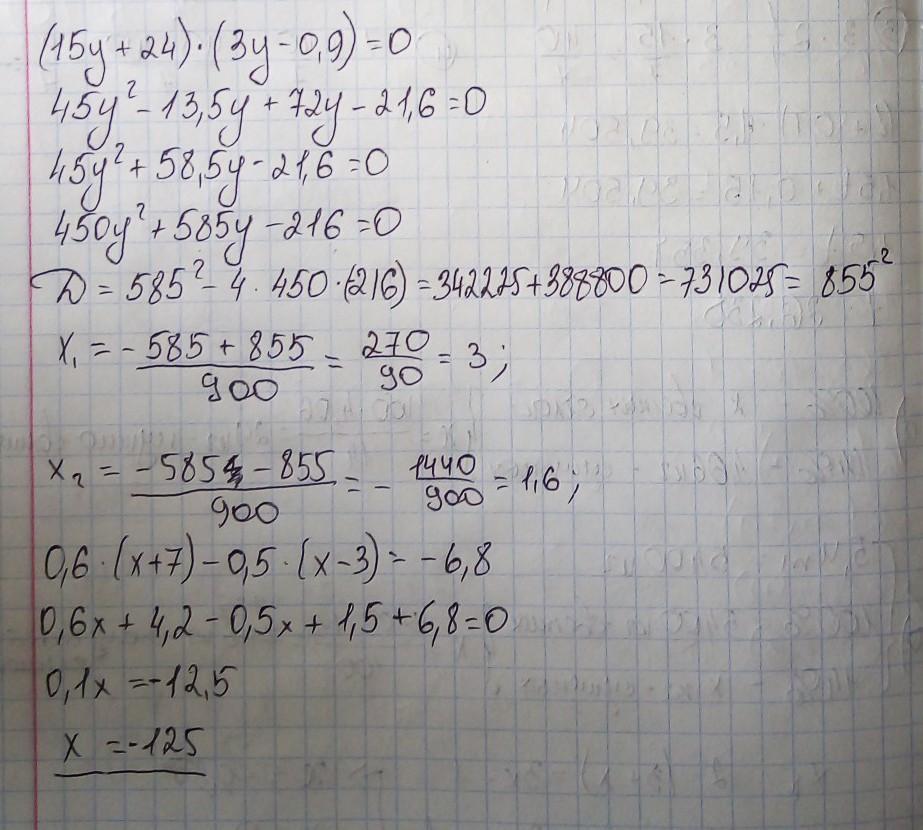 (15y + 24) · (3y - 0,9) = 0
45y² - 13,5y + 72y - 21,6 = 0
45y² + 58,5y - 21,6 = 0
450y² + 585y - 216 = 0
D = 585² - 4 · 450 · (216) = 342225 + 388800 = 731025 = 855²
x₁ = - 585 + 855 / 900 = 270 / 90 = 3 ;
x₂ = -585 - 855 / 900 = - 1440 / 900 = 1,6 ;
0,6 · (x + 7) - 0,5 · (x - 3) = -6,8
0,6x + 4,2 - 0,5x + 1,5 + 6,8 = 0
0,1x = -12,5
x = -125